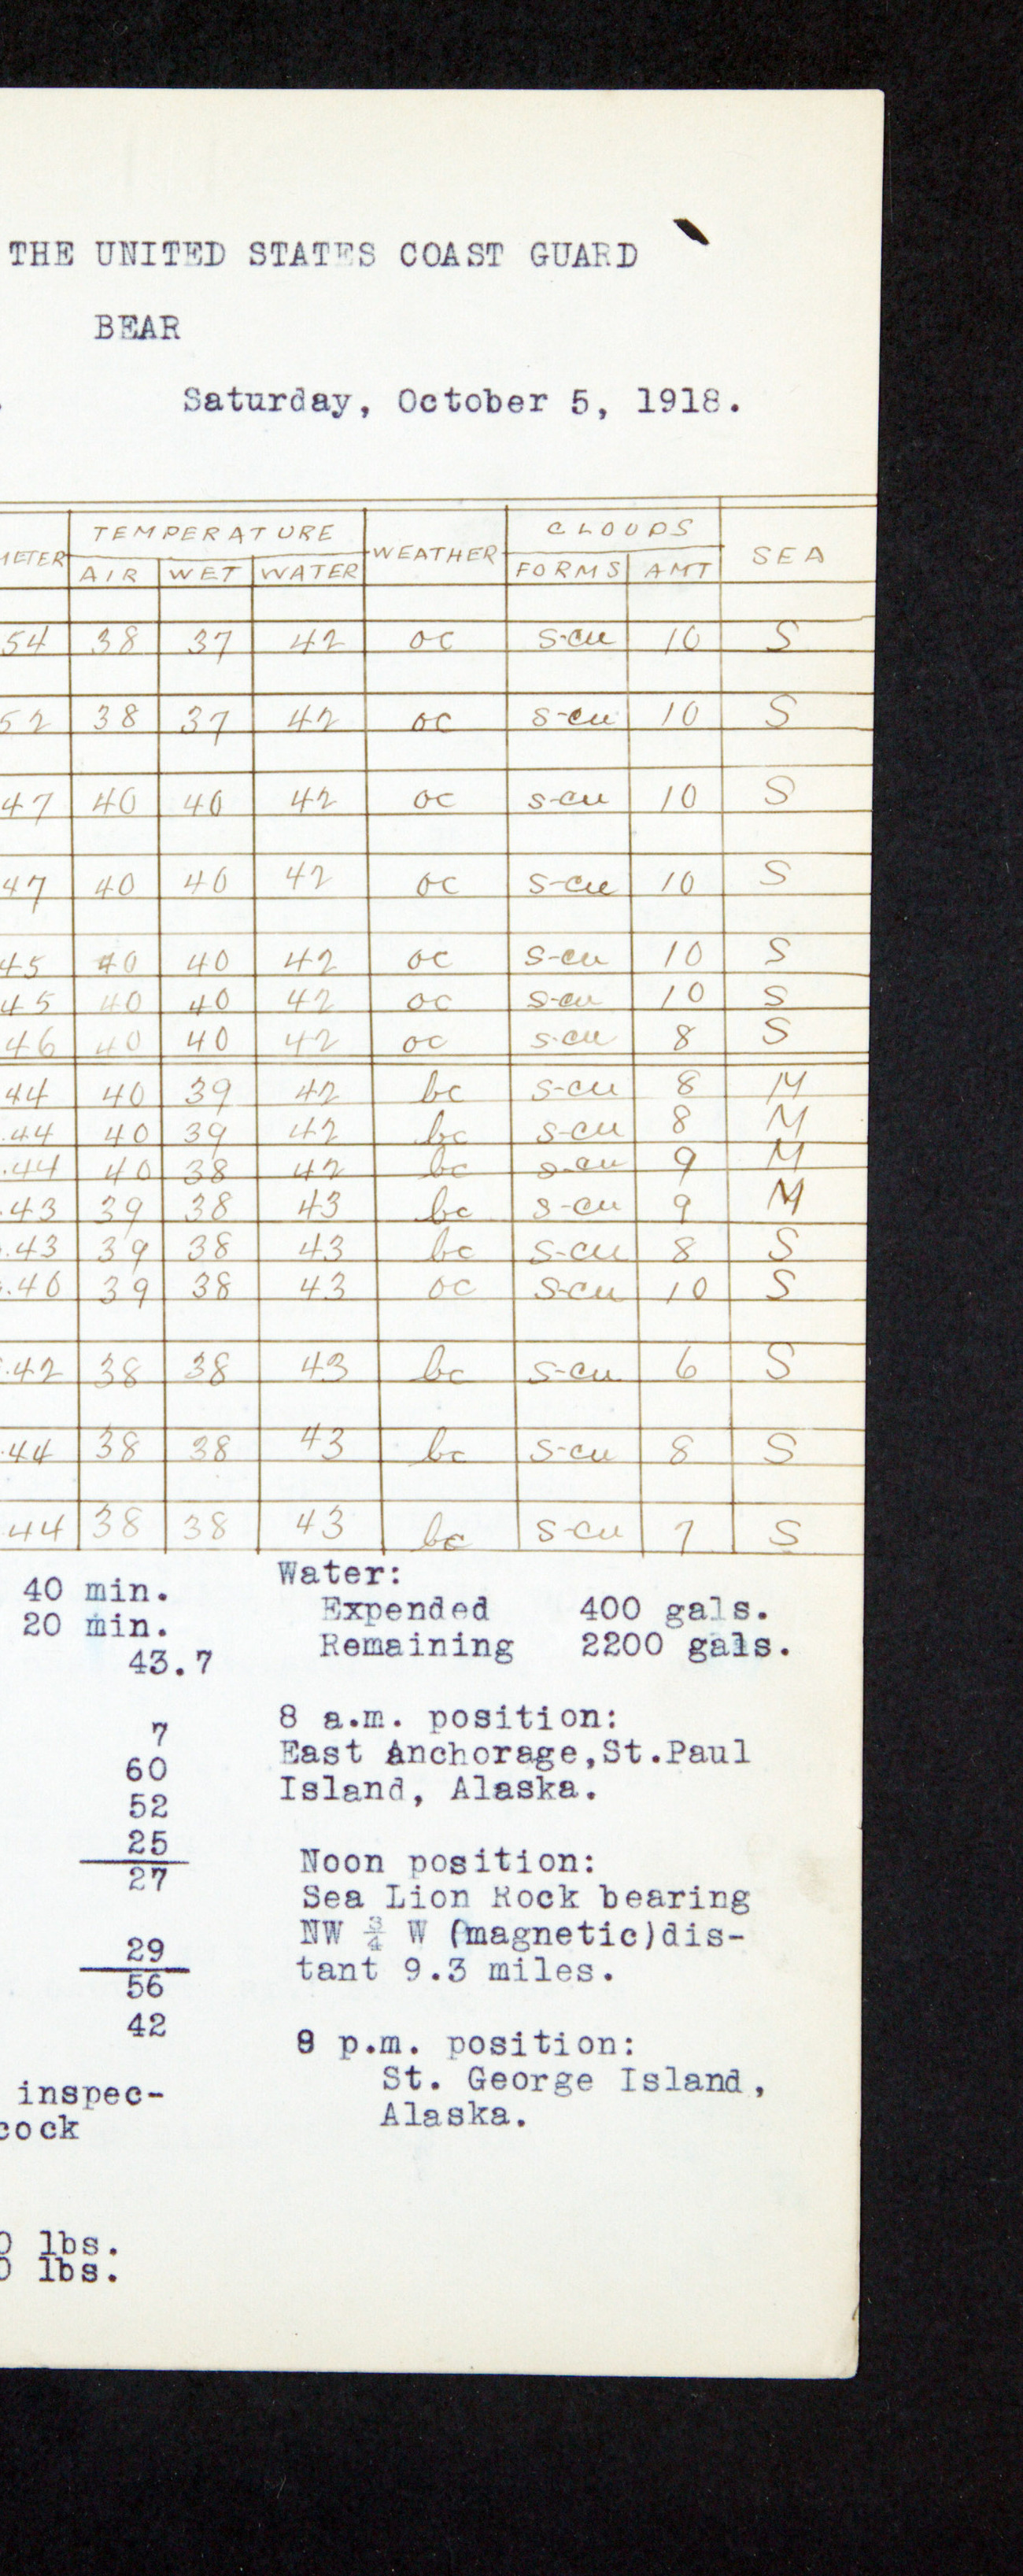 THE UNITED STATES COAST GUARD
BEAR
Saturday, October 5, 1918.
METER TEMPERATURE WEATHER CLOUDS SEA
AIR WET WATER FORMS AMT
54 38 37 42 oc s-cu 10 S
52 38 37 42 oc s-cu 10 S
47 40 40 42 oc s-cu 10 S
47 40 40 42 oc s-cu 10 S
45 40 40 42 oc s-cu 10 S
45 40 40 42 oc s-cu 10 S
46 40 40 42 oc s-cu 8 S
44 40 39 42 bc s-cu 8 M
.44 40 39 42 bc s-cu 8 M
.44 40 38 42 bc s-cu 9 M
.43 39 38 43 bc s-cu 9 M
.43 39 38 43 bc s-cu 8 S
.40 39 38 43 oc s-cu 10 S
.42 38 38 43 bc s-cu 6 S
.44 38 38 43 bc s-cu 8 S
44 38 38 43 bc s-cu 7 S
40 min.
20 min.
43.7
7
60
52
25
27
29
56
42
inspec-
cock
0 lbs.
0 lbs.
Water:
Expended 400 gals.
Remaining 2200 gals.
8 a.m. position:
East Anchorage,St.Paul
Island, Alaska.
Noon position:
Sea Lion Rock bearing
NW ¾ W (magnetic)dis-
tant 9.3 miles.
8 p.m. position:
St. George Island,
Alaska.